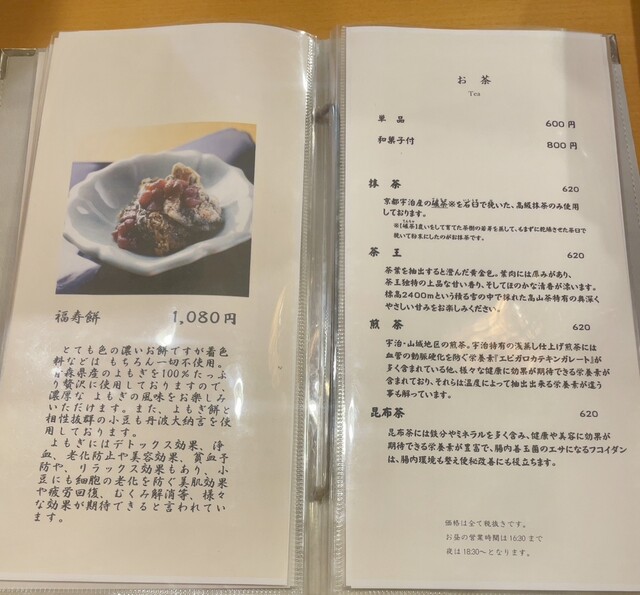 福寿餅 1,080円
とても色の濃いお餅ですが着色
料などは もちろん一切不使用。
青森県産のよもぎを100%たっぷ
り贅沢に使用しておりますので、
濃厚な よもぎの風味をお楽しみ
いただけます。また、よもぎ餅と
相性抜群の小豆も丹波大納言を使
用しております。
よもぎにはデトックス効果、浄
血、老化防止や美容効果、貧血予
防や、リラックス効果もあり、小
豆にも細胞の老化を防ぐ美肌効果
や疲労回復、むくみ解消等、様々
な効果が期待できると言われてい
ます。
お 茶
Tea
単 品 600円
和菓子付 800円
抹 茶 620
京都宇治産の碾茶※を石臼で挽いた、高級抹茶のみ使用
しております。
※【碾茶】直いをして育てた茶樹の若芽を蒸して、もまずに乾燥させた茶臼で
挽いて粉末にしたのがお抹茶です。
茶 王 620
茶葉を抽出すると澄んだ黄金色。葉肉には厚みがあり、
茶王独特の上品な甘い香り、そしてほのかな清香が漂います。
標高2400mという積る雪の中で採れた高山茶特有の奥深く
やさしい甘みをお楽しみください。
煎 茶 620
宇治・山城地区の煎茶。宇治特有の浅蒸し仕上げ煎茶には
血管の動脈硬化を防ぐ栄養素「エピガロカテキンガレート」が
多く含まれている他、様々な健康に効果が期待できる栄養素が
含まれており、それらは温度によって抽出出来る栄養素が違う
事も解っています。
昆布茶 620
昆布茶には鉄分やミネラルを多く含み、健康や美容に効果が
期待できる栄養が豊富で、腸内善玉菌のエサになるフコイダン
は、腸内環境も整え便秘改善にも役立ちます。
価格は全て税抜きです。
お昼の営業時間は16:30まで
夜は18:30〜となります。